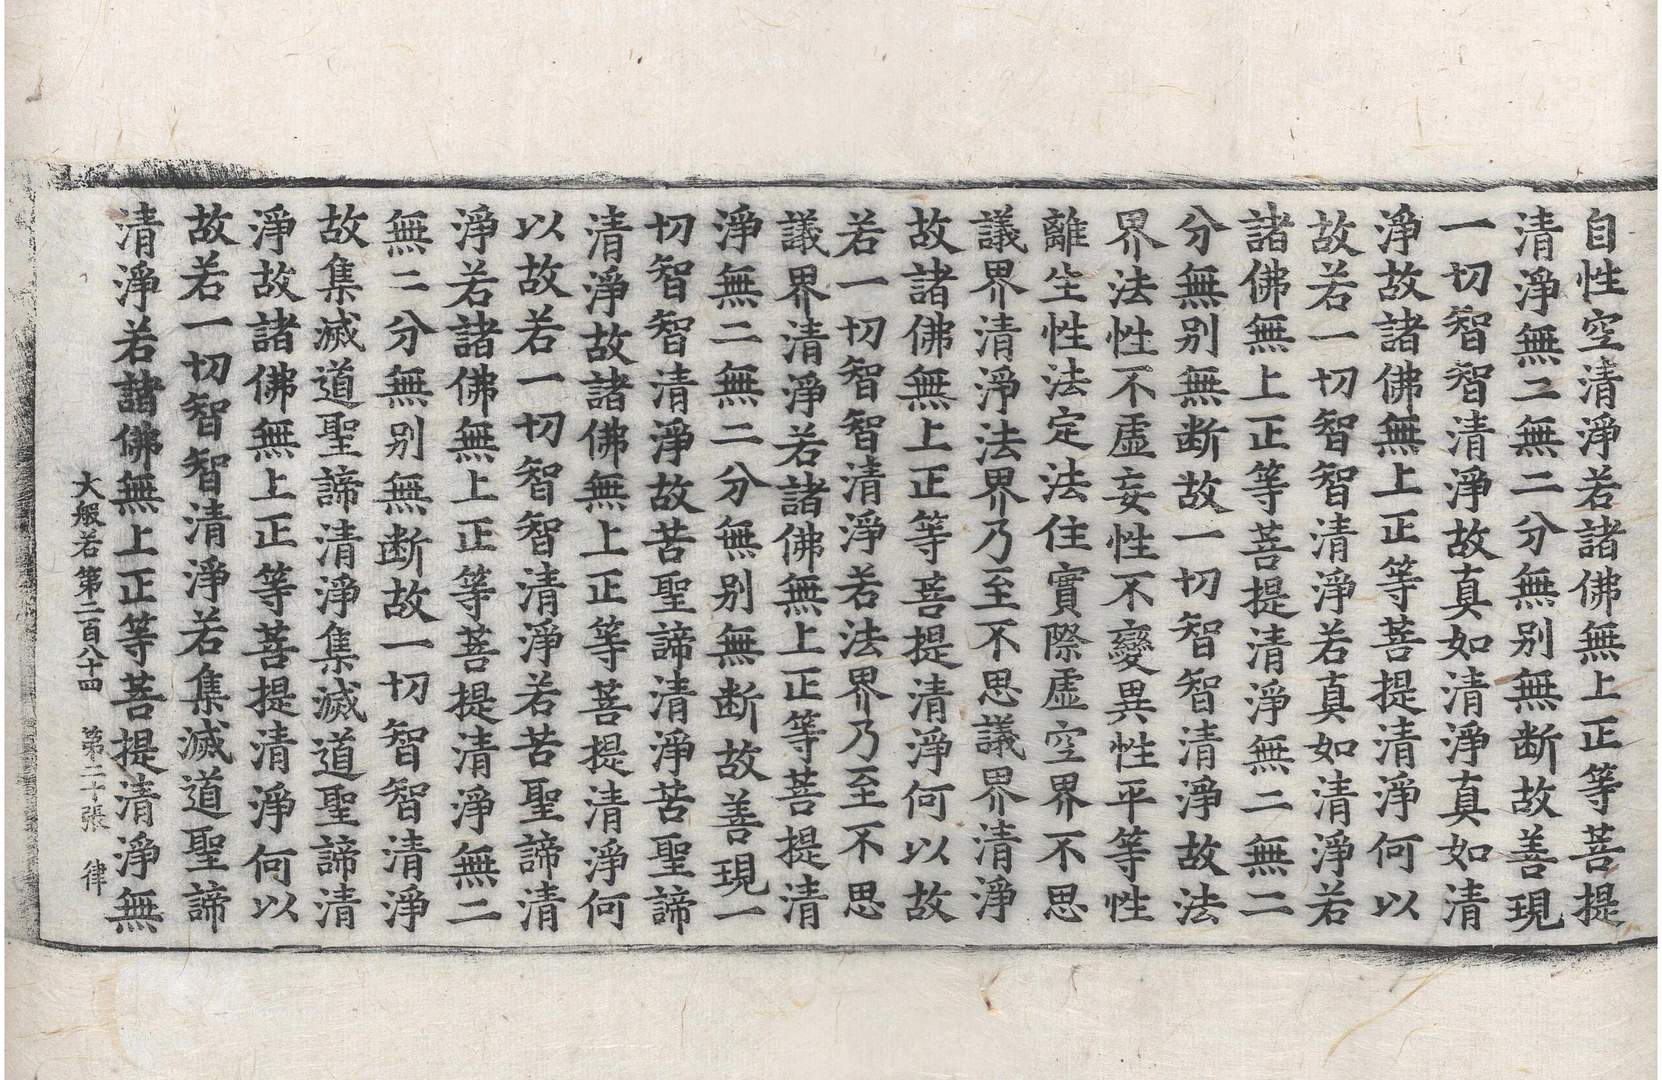 自性空清淨若諸佛無上正等菩提
清淨無二無二分無別無断故善現
一切智智清淨故真如清淨真如清
淨故諸佛無上正等菩提清淨何以
故若一切智智清淨若真如清淨若
諸佛無上正等菩提清淨無二無二
分無別無断故一切智智清淨故法
界法性不虛妄性不變異性平等性
離生性法定法住實際虛空界不思
議界清淨法界乃至不思議界清淨
故諸佛無上正等菩提清淨何以故
若一切智智清淨若法界乃至不思
議界清淨若諸佛無上正等菩提清
淨無二無二分無別無断故善現一
切智智清淨故苦聖諦清淨苦聖諦
清淨故諸佛無上正等菩提清淨何
以故若一切智智清淨若苦聖諦清
淨若諸佛無上正等菩提清淨無二
無二分無別無断故一切智智清淨
故集滅道聖諦清淨集滅道聖諦清
淨故諸佛無上正等菩提清淨何以
故若一切智智清淨若集滅道聖諦
清淨若諸佛無上正等菩提清淨無
大般若第二百八十四 第二十張 律